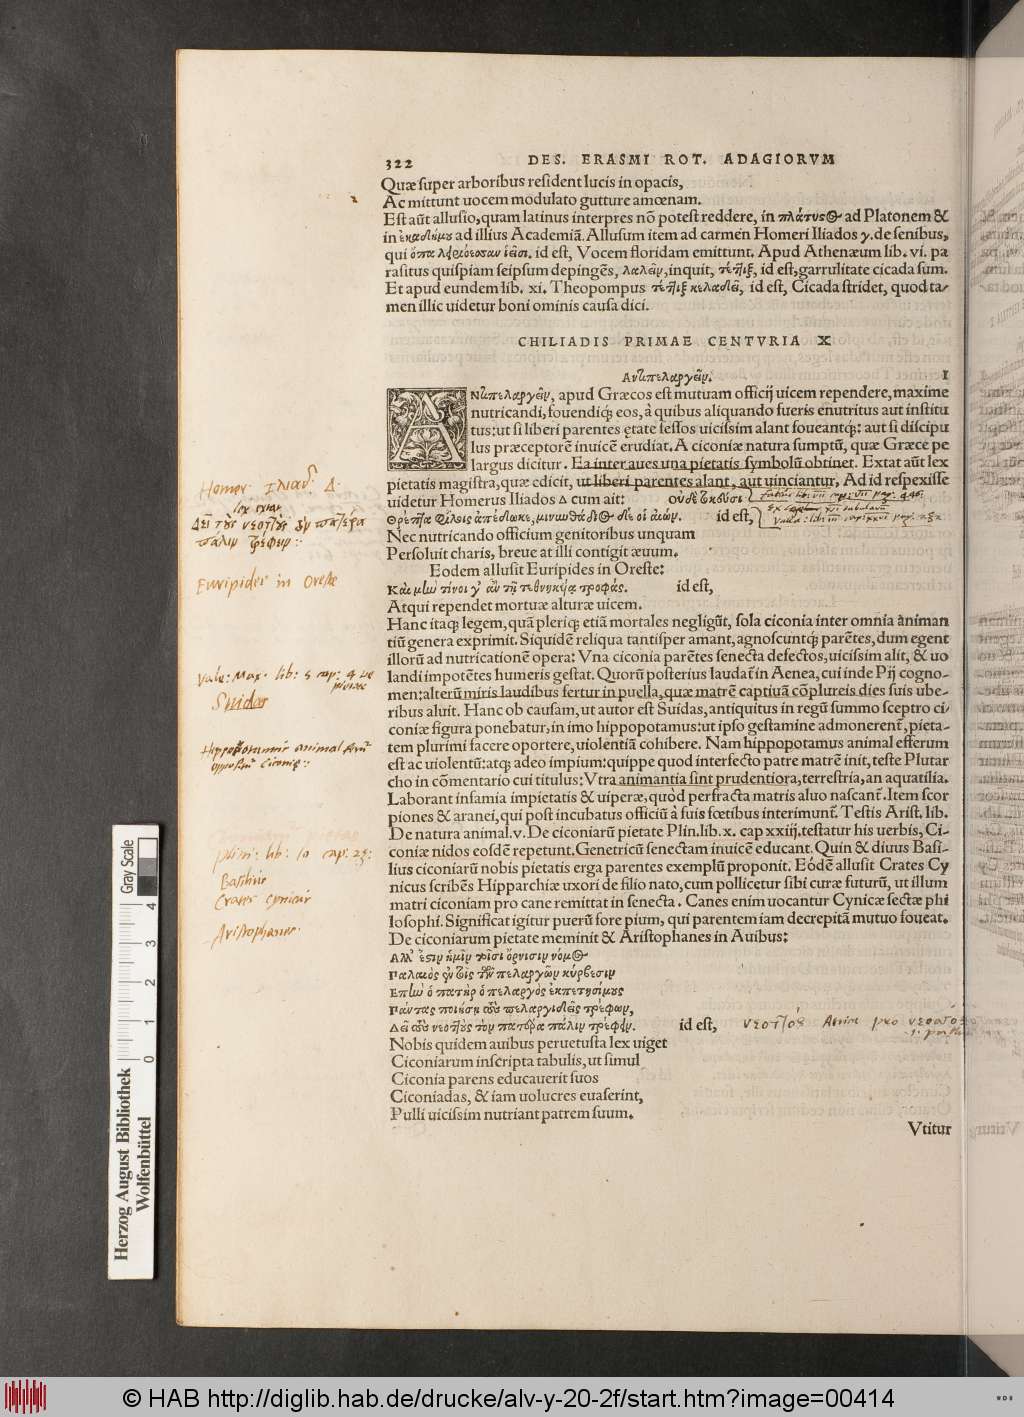 322 DES. ERASMI ROT. ADAGIORVM
Quæ super arboribus resident lucis in opacis,
Ac mittunt uocem modulato gutture amœnam.
Est aũt allusio, quam latinus interpres nõ potest reddere, in πλάτυσος ad Platonem &
in ἑκαδήμου ad illius Academiã. Allusum item ad carmen Homeri Iliados γ. de senibus,
qui ὄπα λειριόεσσαν ἱεῖσι. id est, Vocem floridam emittunt. Apud Athenæum lib. vi. pa
rasitus quispiam seipsum depingẽs, λαλεῖν, inquit, τέττιξ, id est, garrulitate cicada sum.
Et apud eundem lib. xi. Theopompus τέττιξ κελαδεῖ, id est, Cicada stridet, quod ta-
men illic uidetur boni ominis causa dici.
CHILIADIS PRIMAE CENTVRIA X
Αντιπελαργεῖν. I
ΑΝτιπελαργεῖν, apud Græcos est mutuam officij uicem rependere, maxime
nutricandi, fouendiq́; eos, à quibus aliquando fueris enutritus aut institu
tus: ut si liberi parentes ętate fessos uicissim alant foueantq́;: aut si discipu
lus præceptorẽ inuicẽ erudiat. A ciconiæ natura sumptũ, quæ Græce pe
largus dicitur. Ea inter aues una pietatis symbolũ obtinet. Extat aũt lex
pietatis magistra, quæ edicit, ut liberi parentes alant, aut uinciantur, Ad id respexisse
uidetur Homerus Iliados Δ cum ait: οὐδὲ τοκεῦσι
Θρέπτρα φίλοις ἀπέδωκε, μινυνθάδιος δέ οἱ αἰών. id est,
Nec nutricando officium genitoribus unquam
Persoluit charis, breue at illi contigit æuum.
Eodem allusit Euripides in Oreste:
Και μὼ τίνοι γ᾽ ἂν τῇ τεθνηκυίᾳ τροφάς. id est,
Atqui rependet mortuæ alturæ uicem.
Hanc itaq; legem, quã pleriq; etiã mortales negligũt, sola ciconia inter omnia animan
tiũ genera exprimit. Siquidẽ reliqua tantisper amant, agnoscuntq; parẽtes, dum egent
illorũ ad nutricationẽ opera: Vna ciconia parẽtes senecta defectos, uicissim alit, & uo
landi impotẽtes humeris gestat. Quorũ posterius laudat̃ in Aenea, cui inde Pij cogno-
men: alterũ miris laudibus fertur in puella, quæ matrẽ captiuã cõplureis dies suis ube-
ribus aluit. Hanc ob causam, ut autor est Suidas, antiquitus in regũ summo sceptro ci-
coniæ figura ponebatur, in imo hippopotamus: ut ipso gestamine admonerent̃, pieta-
tem plurimi facere oportere, uiolentiã cohibere. Nam hippopotamus animal efferum
est ac uiolentũ: atq; adeo impium: quippe quod interfecto patre matrẽ init, teste Plutar
cho in cõmentario cui titulus: Vtra animantia sint prudentiora, terrestria, an aquatilia.
Laborant infamia impietatis & uiperæ, quòd perfracta matris aluo nascant̃. Item scor
piones & aranei, qui post incubatus officiũ à suis fœtibus interimunt̃. Testis Arist. lib.
De natura animal. v. De ciconiarũ pietate Plin. lib. x. cap xxiij. testatur his uerbis, Ci-
coniæ nidos eosdẽ repetunt. Genetricũ senectam inuicẽ educant. Quin & diuus Basi-
lius ciconiarũ nobis pietatis erga parentes exemplũ proponit. Eódẽ allusit Crates Cy
nicus scribẽs Hipparchiæ uxori de filio nato, cum pollicetur sibi curæ futurũ, ut illum
matri ciconiam pro cane remittat in senecta. Canes enim uocantur Cynicæ sectæ phi
losophi. Significat igitur puerũ fore pium, qui parentem iam decrepitã mutuo foueat.
De ciconiarum pietate meminit & Aristophanes in Auibus:
Αλλ᾽ ἔστιν ἡμῖν τοῖσι ὄρνισιν νόμος
Παλαιὸς ἐν ταῖς τῶν πελαργῶν κύρβεσιν
Επὼ ὁ πατὴρ ὁ πελαργὸς ἐκπετησίμους
Πάντας ποιήσῃ τοὺς πελαργιδεῖς τρέφων,
Δεῖ τοὺς νεοττοὺς τὸν πατέρα πάλιν τρέφειν. id est,
Nobis quidem auibus peruetusta lex uiget
Ciconiarum inscripta tabulis, ut simul
Ciconia parens educauerit suos
Ciconiadas, & iam uolucres euaserint,
Pulli uicissim nutriant patrem suum.
Vtitur
Homer Ιλιαδ Δ.
lex extat
Δεῖ τοὺς νεοττοὺς τὸν πατέρα
πάλιν τρέφειν:
Euripides in Oreste
Vale: Max. lib: 5 cap: 4 de
pietate
Suidas
Hippopotamus animal
Ciconię:
Plin: lib: 10 cap: 23:
Basilius
Crates Cynicus
Aristophanes.
Gray Scale
0 1 2 3 4
Herzog August Bibliothek
Wolfenbüttel
© HAB http://diglib.hab.de/drucke/alv-y-20-2f/start.htm?image=00414